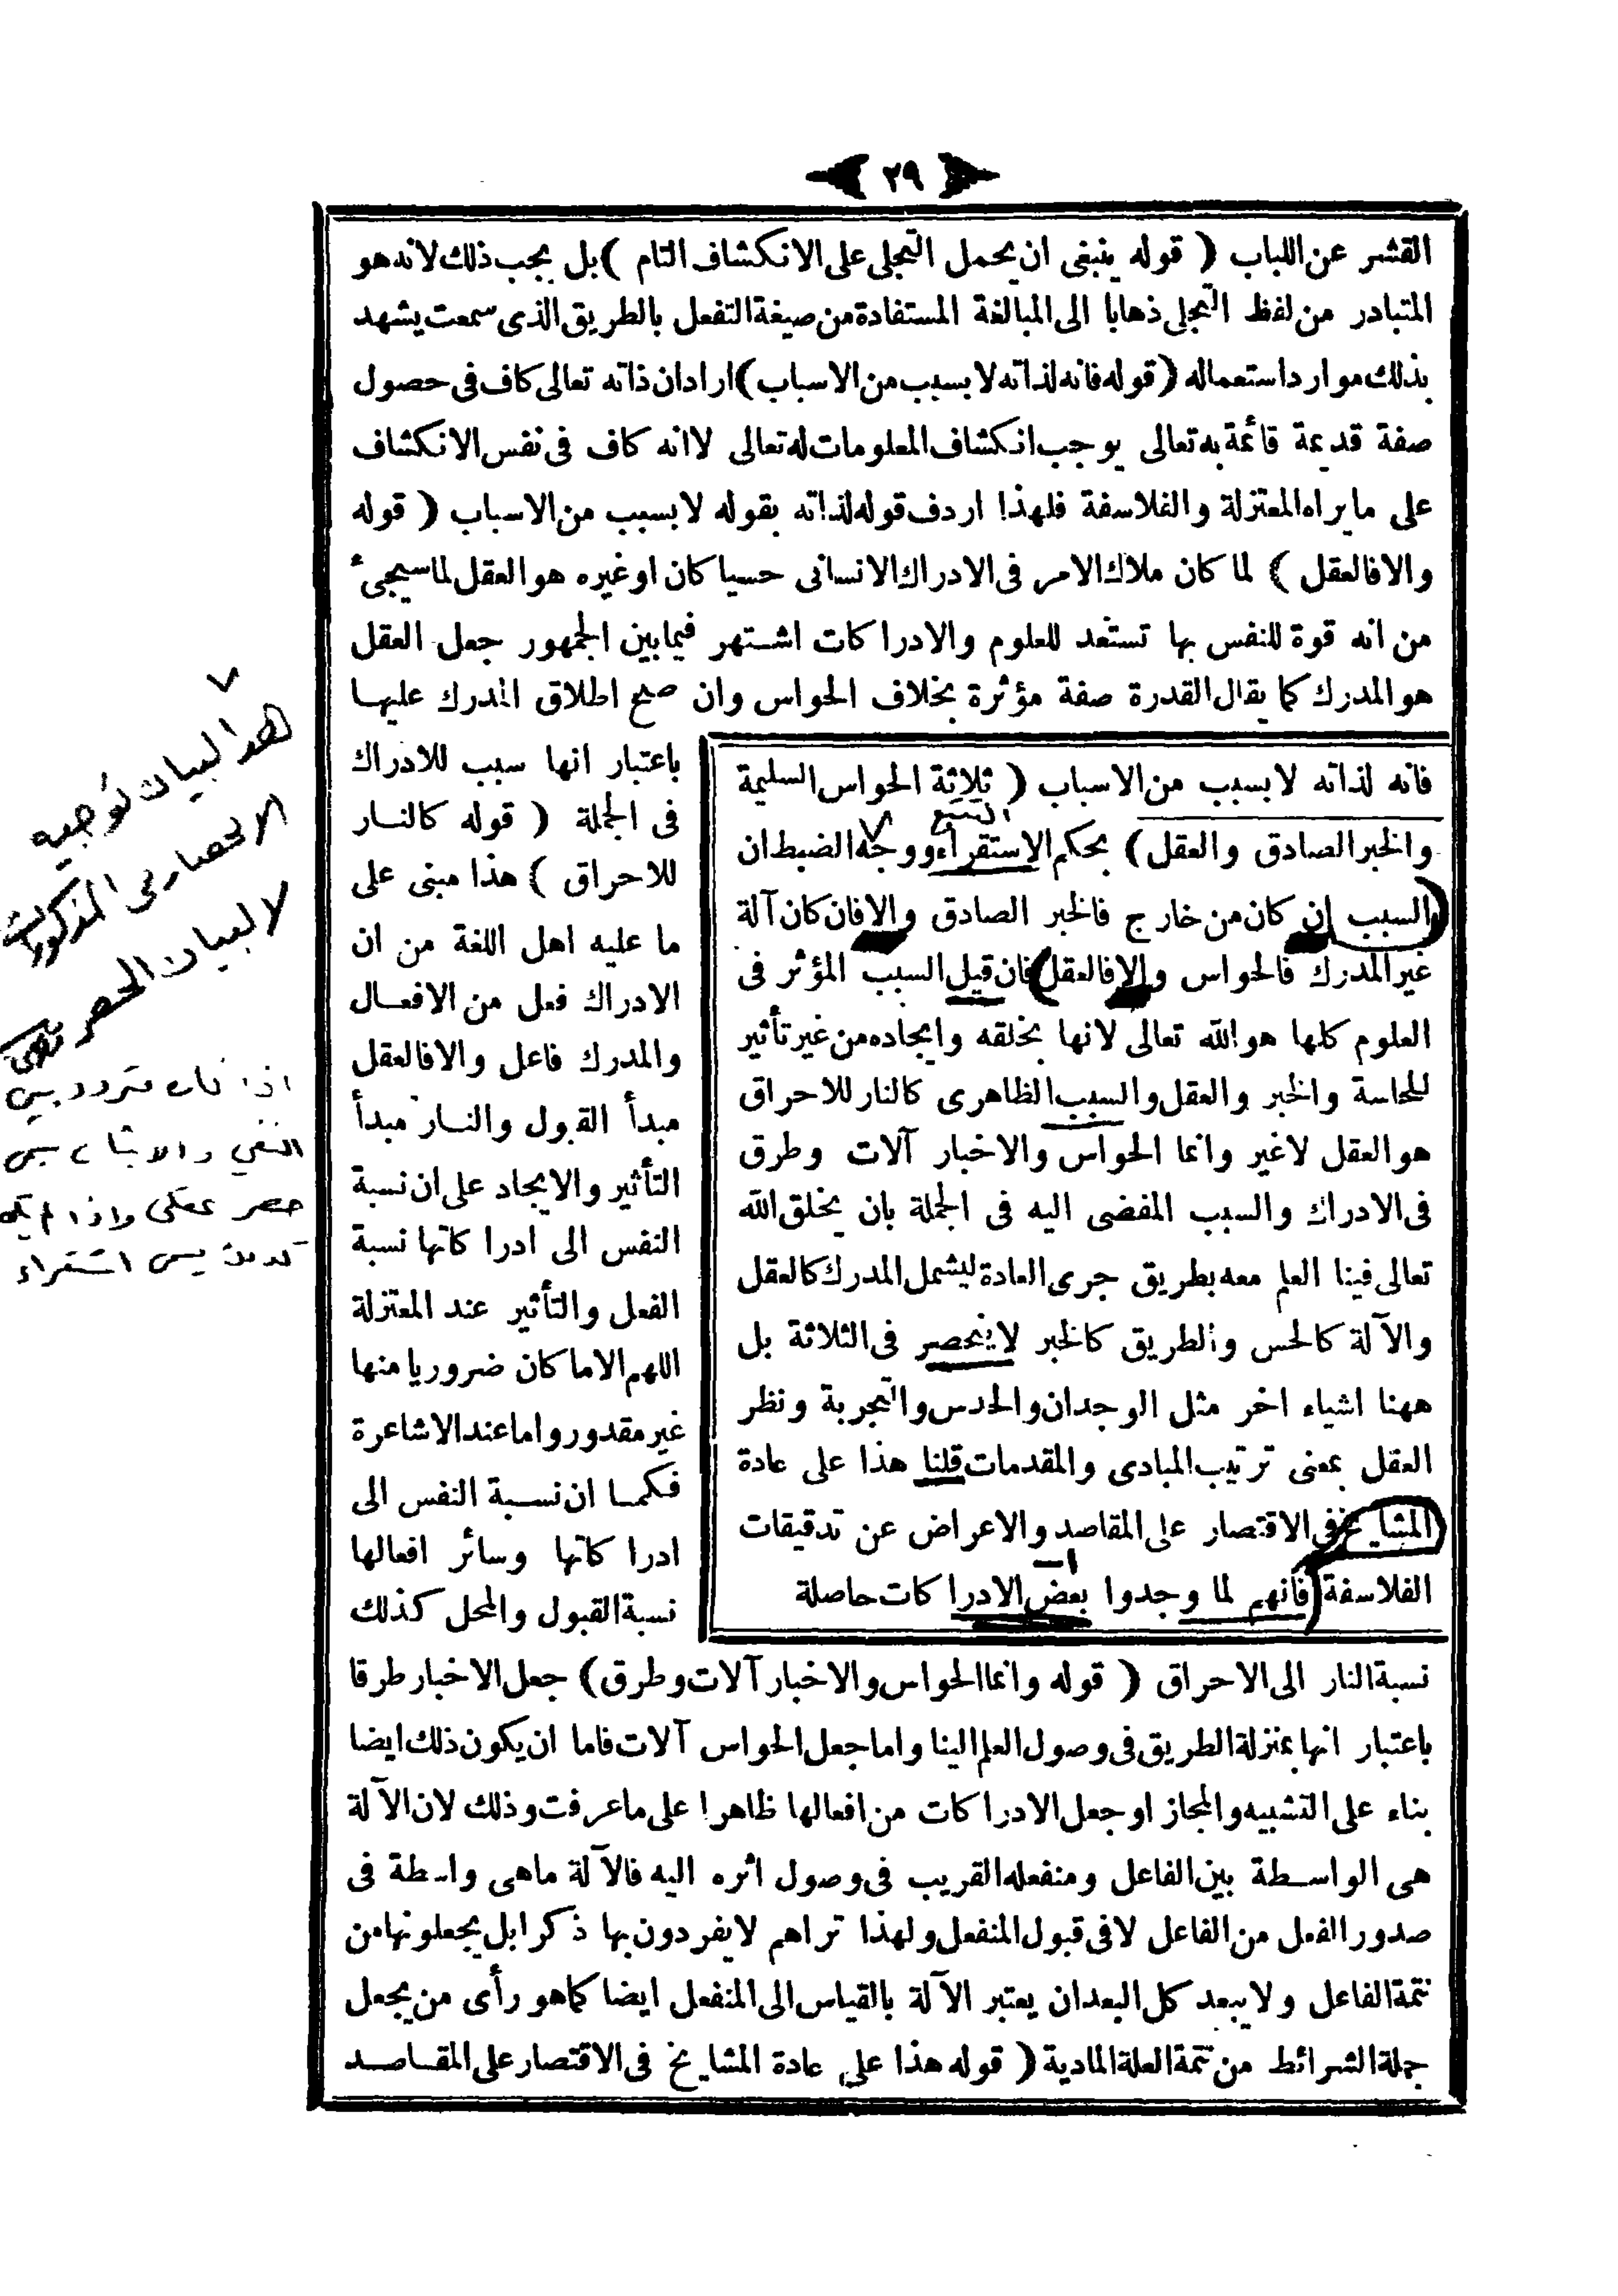 ٢٩
القشر عن اللباب ( قوله ينبغى ان يحمل التجلى على الانكشاف التام ) بل يجب ذلك لانه هو
المتبادر من لفظ التجلى ذهابا الى المبالغة المستفادة من صيغة التفعل بالطريق الذى سمعت يشهد
بذلك موارد استعماله ( قوله فانه لذاته لا بسبب من الاسباب ) اراد ان ذاته تعالى كاف فى حصول
صفة قديمة قائمة به تعالى يوجب انكشاف المعلومات له تعالى لا انه كاف فى نفس الانكشاف
على ما يراه المعتزلة والفلاسفة فلهذا اردف قوله لذاته بقوله لا بسبب من الاسباب ( قوله
والا فالعقل ) لما كان ملاك الامر فى الادراك الانسانى حسيا كان او غيره هو العقل لما سيجىء
من انه قوة للنفس بها تستعد للعلوم والادراكات اشتهر فيما بين الجمهور جعل العقل
هو المدرك كما يقال القدرة صفة مؤثرة بخلاف الحواس وان صح اطلاق المدرك عليها
فانه لذاته لا بسبب من الاسباب ( ثلاثة الحواس السليمة
التتبع
والخبر الصادق والعقل ) بحكم الاستقراء ووجه الضبط ان
السبب ان كان من خارج فالخبر الصادق والا فان كان آلة
غير المدرك فالحواس والا فالعقل فان قيل السبب المؤثر فى
العلوم كلها هو الله تعالى لانها بخلقه وايجاده من غير تأثير
للحاسة والخبر والعقل والسبب الظاهرى كالنار للاحراق
هو العقل لا غير وانما الحواس والاخبار آلات وطرق
فى الادراك والسبب المفضى اليه فى الجملة بان يخلق الله
تعالى فينا العلم معه بطريق جرى العادة ليشمل المدرك كالعقل
والآلة كالحس والطريق كالخبر لا ينحصر فى الثلاثة بل
ههنا اشياء اخر مثل الوجدان والحدس والتجربة ونظر
العقل بمعنى ترتيب المبادى والمقدمات قلنا هذا على عادة
المشايخ فى الاقتصار على المقاصد والاعراض عن تدقيقات
الفلاسفة فانهم لما وجدوا بعض الادراكات حاصلة
باعتبار انها سبب للادراك
فى الجملة ( قوله كالنار
للاحراق ) هذا مبنى على
ما عليه اهل اللغة من ان
الادراك فعل من الافعال
والمدرك فاعل والا فالعقل
مبدأ القبول والنار مبدأ
التأثير والايجاد على ان نسبة
النفس الى ادراكاتها نسبة
الفعل والتأثير عند المعتزلة
اللهم الا ما كان ضروريا منها
غير مقدور واما عند الاشاعرة
فكما ان نسبة النفس الى
ادراكاتها وسائر افعالها
نسبة القبول والمحل كذلك
نسبة النار الى الاحراق ( قوله وانما الحواس والاخبار آلات وطرق ) جعل الاخبار طرقا
باعتبار انها بمنزلة الطريق فى وصول العلم الينا واما جعل الحواس آلات فاما ان يكون ذلك ايضا
بناء على التشبيه والمجاز او جعل الادراكات من افعالها ظاهرا على ما عرفت وذلك لان الآلة
هى الواسطة بين الفاعل ومنفعله القريب فى وصول اثره اليه فالآلة ماهى واسطة فى
صدور الفعل من الفاعل لا فى قبول المنفعل ولهذا تراهم لا يفردون بها ذكرا بل يجعلونها من
تتمة الفاعل ولا يبعد كل البعد ان يعتبر الآلة بالقياس الى المنفعل ايضا كما هو رأى من يجعل
جملة الشرائط من تتمة العلة المادية ( قوله هذا على عادة المشايخ فى الاقتصار على المقاصد
هذا البيان توجيه
الانحصار فى المذكورات
لا لبيان الحصر
اذا كان تردد بين
النفي والاثبات
حصر عقلى واذا لم يكن
استقراء